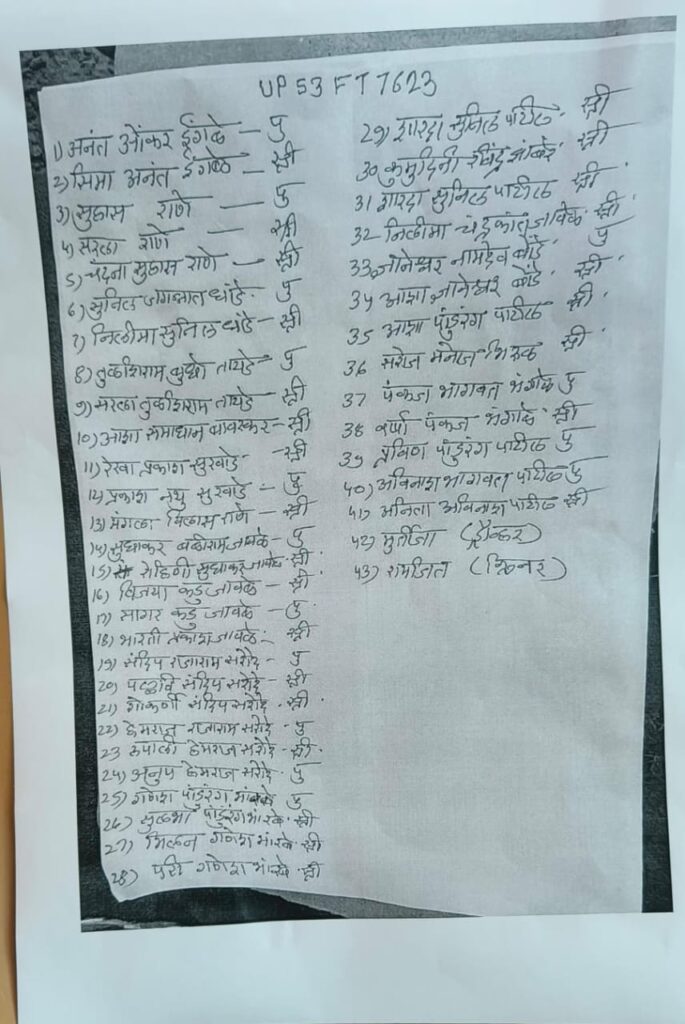 UP 53 FT 7623
1) अनंत ओंकर इंगळे - पु
2) सिमा अनंत इंगळे - स्त्री
3) सुहास राणे - पु
4) सरला राणे - स्त्री
5) चंदना सुहास राणे - स्त्री
6) सुनिल जगन्नाथ धांडे - पु
7) निलीमा सुनिल धांडे - स्त्री
8) तुळशिराम बुधो तायडे - पु
9) सरला तुळशिराम तायडे - स्त्री
10) आशा समाधान बावस्कर - स्त्री
11) रेखा प्रकाश सुरवाडे - स्त्री
12) प्रकाश नथु सुरवाडे - पु
13) मंगला विलास राणे - स्त्री
14) सुधाकर बळीराम जावळे - पु
15) रोहिणी सुधाकर जावळे - स्त्री
16) विजया कडु जावळे - स्त्री
17) सागर कडु जावळे - पु
18) भारती प्रकाश जावळे - स्त्री
19) संदिप राजाराम सरोदे - पु
20) पल्लवि संदिप सरोदे - स्त्री
21) गोकर्णी संदिप सरोदे - स्त्री
22) हेमराज राजाराम सरोदे - पु
23 रूपाली हेमराज सरोदे - स्त्री
24) अनुप हेमराज सरोदे - पु
25) गणेश पांडुरंग भारंबे पु
26) सुलभा पांडुरंग भारंबे - स्त्री
27) मिलन गणेश भारंबे - स्त्री
28) परी गणेश भारंबे - स्त्री
29) शारदा सुनिल पाटील - स्त्री
30 कुमुदिनी रविंद्र स्त्री
31 शारदा सुनिल पाटील स्त्री
32 निलीमा चंद्रकांत जावळे - स्त्री
33 ज्ञानेश्वर नामदेव बोंडे पु
34 आशा ज्ञानेश्वर बोंडे - स्त्री
35 आशा पांडुरंग पाटील स्त्री
36 सरोज मनोज भिरूड स्त्री
37 पंकज भागवत भंगाळे पु
38 वर्षा पंकज भंगाळे - स्त्री
39 प्रविण पांडुरंग पाटील पु
40) अविनाश भागवत पाटील पु
41) अनिता अविनाश पाटील स्त्री
42) मुर्तीजा (ड्रायव्हर)
43) रामजित (क्लिनर)